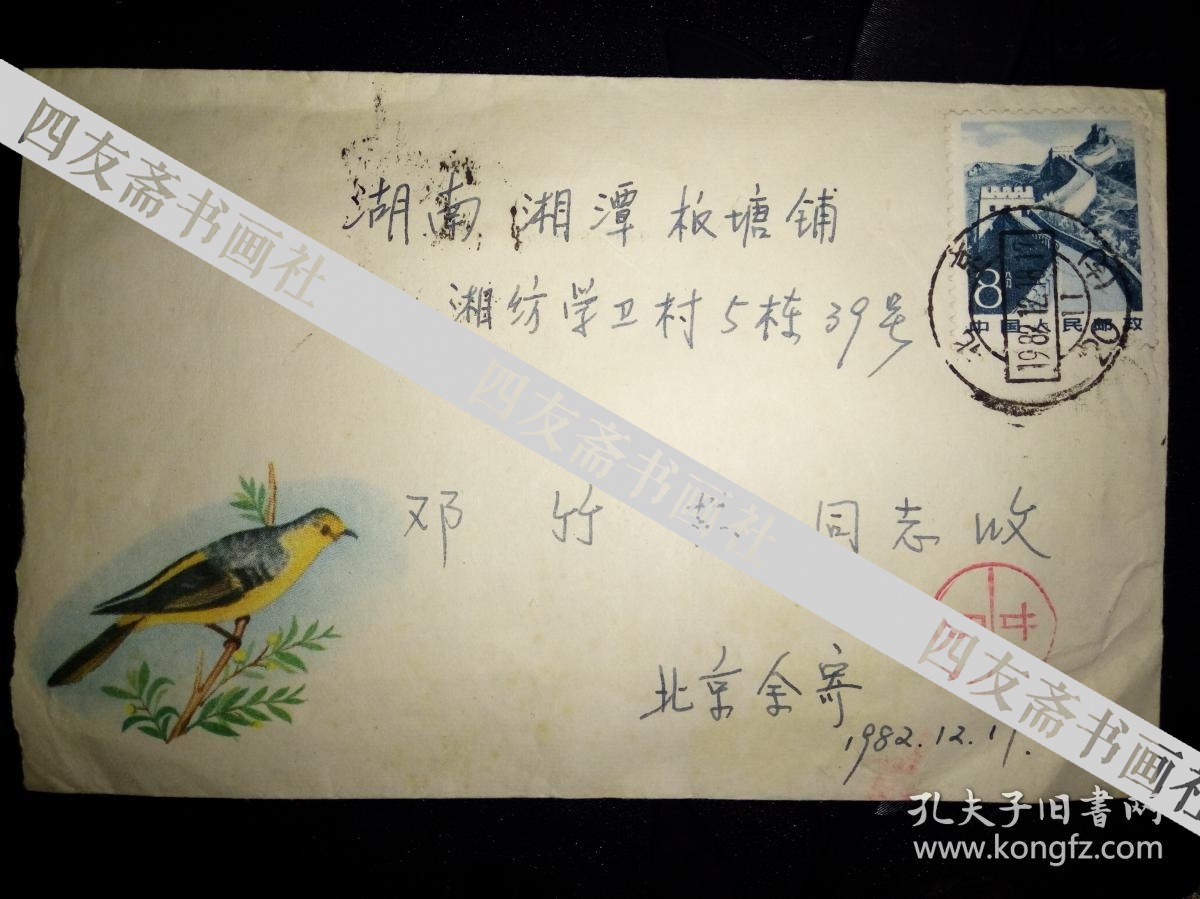 湖南 湘潭 板塘铺
湘纺学卫村5栋39号
8
中国人民邮政
北京
1982.12
邓 竹 同志收
北京余寄
1982.12.17.
四友斋书画社
四友斋书画社
四友斋书画社
孔夫子旧书网
www.kongfz.com